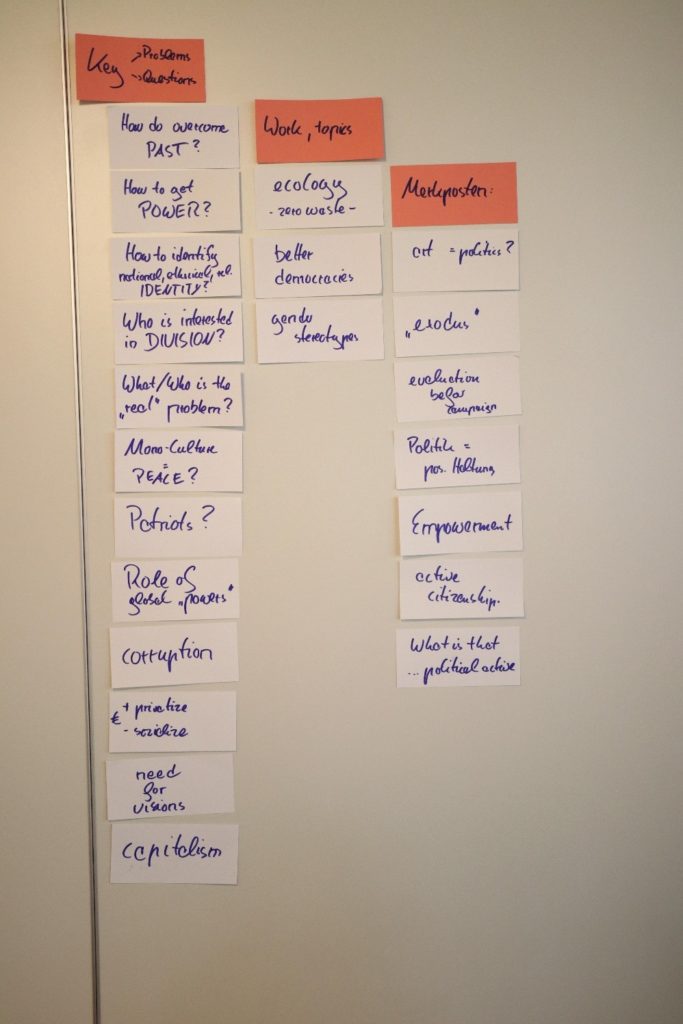 Key → Problems
→ Questions
How do overcome
PAST?
How to get
POWER?
How to identify
national, ethnical, rel.
IDENTITY?
Who is interested
in DIVISION?
What/Who is the
„real" problem?
Mono-Culture
=
PEACE?
Patriots?
Role of
global „powers"
corruption
€ + privatize
- sozialize
need
for
visions
capitalism
Work, topics
ecology
- zero waste -
better
democracies
gender
stereotypes
Merkposten:
art = politics?
„exodus"
evaluation
before
campaign
Politik =
pos. Haltung
Empowerment
active
citizenship.
What is that
... political active